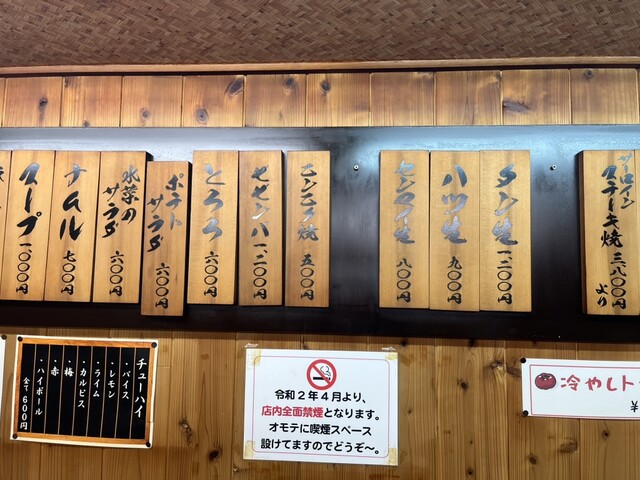 サーロイン
ステーキ焼
三、八〇〇円
より
タン生
一、二〇〇円
ハツ生
九〇〇円
センマイ生
八〇〇円
ニンニク焼
五〇〇円
一、二〇〇円
とろろ
六〇〇円
ポテト
サラダ
六〇〇円
水菜の
サラダ
六〇〇円
ナムル
七〇〇円
スープ
一〇〇〇円
チューハイ
・バイス
・レモン
・ライム
・カルピス
・梅
・赤
・ハイボール
全て600円
令和2年4月より、
店内全面禁煙となります。
オモテに喫煙スペース
設けてますのでどうぞ〜。
冷やしト
¥